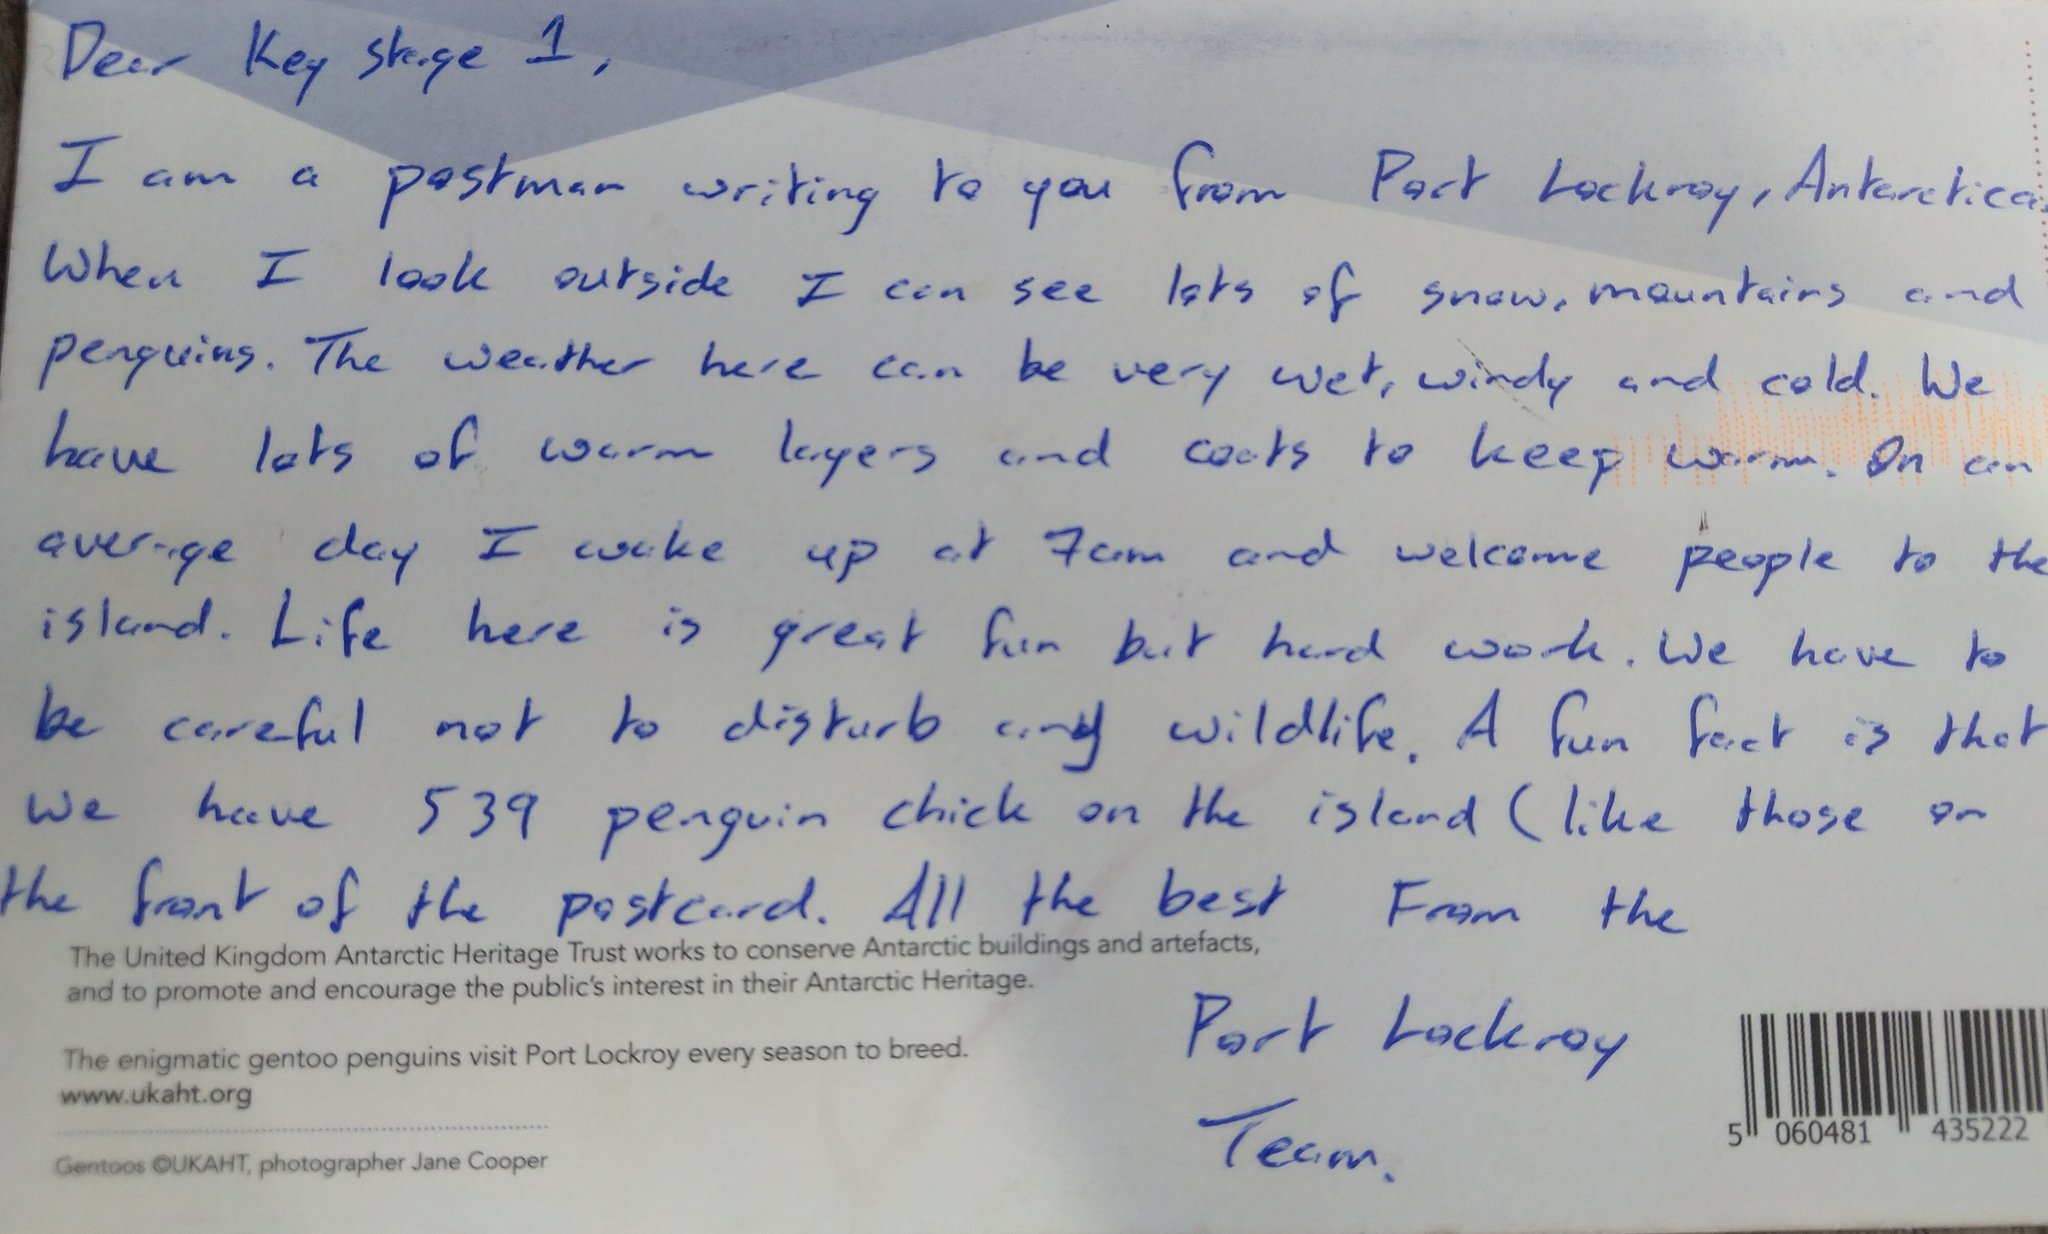 Dear Key Stage 1,
I am a postman writing to you from Port Lockroy, Antarctica.
When I look outside I can see lots of snow, mountains and
penguins. The weather here can be very wet, windy and cold. We
have lots of warm layers and coats to keep warm. On an
average day I wake up at 7am and welcome people to the
island. Life here is great fun but hard work. We have to
be careful not to disturb any wildlife. A fun fact is that
we have 539 penguin chick on the island (like those on
the front of the postcard. All the best From the
Port Lockroy
Team.
The United Kingdom Antarctic Heritage Trust works to conserve Antarctic buildings and artefacts,
and to promote and encourage the public's interest in their Antarctic Heritage.
The enigmatic gentoo penguins visit Port Lockroy every season to breed.
www.ukaht.org
Gentoos ©UKAHT, photographer Jane Cooper
5 060481 435222